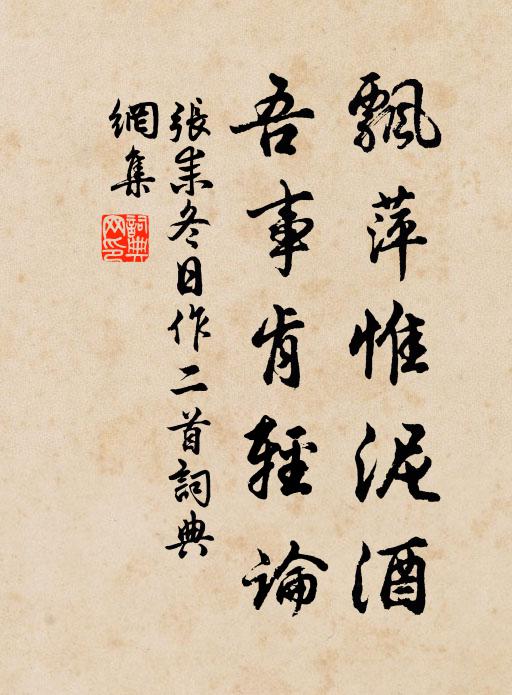 飄萍惟泥酒
吾事肯輕論
張耒冬日作二首詞典
網集
詞典
网印